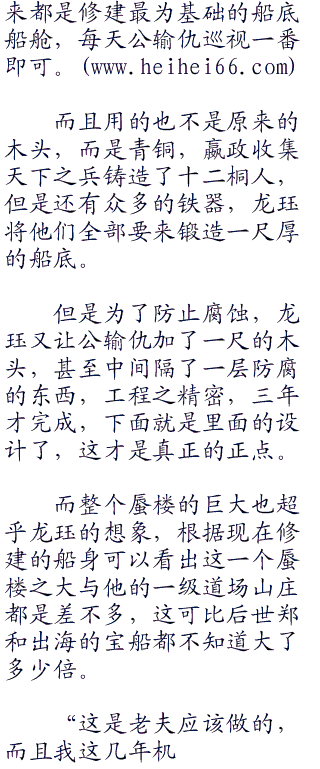 来都是修建最为基础的船底
船舱，每天公输仇巡视一番
即可。(www.heihei66.com)
而且用的也不是原来的
木头，而是青铜，嬴政收集
天下之兵铸造了十二桐人，
但是还有众多的铁器，龙珏
将他们全部要来锻造一尺厚
的船底。
但是为了防止腐蚀，龙
珏又让公输仇加了一尺的木
头，甚至中间隔了一层防腐
的东西，工程之精密，三年
才完成，下面就是里面的设
计了，这才是真正的正点。
而整个蜃楼的巨大也超
乎龙珏的想象，根据现在修
建的船身可以看出这一个蜃
楼之大与他的一级道场山庄
都是差不多，这可比后世郑
和出海的宝船都不知道大了
多少倍。
“这是老夫应该做的，
而且我这几年机